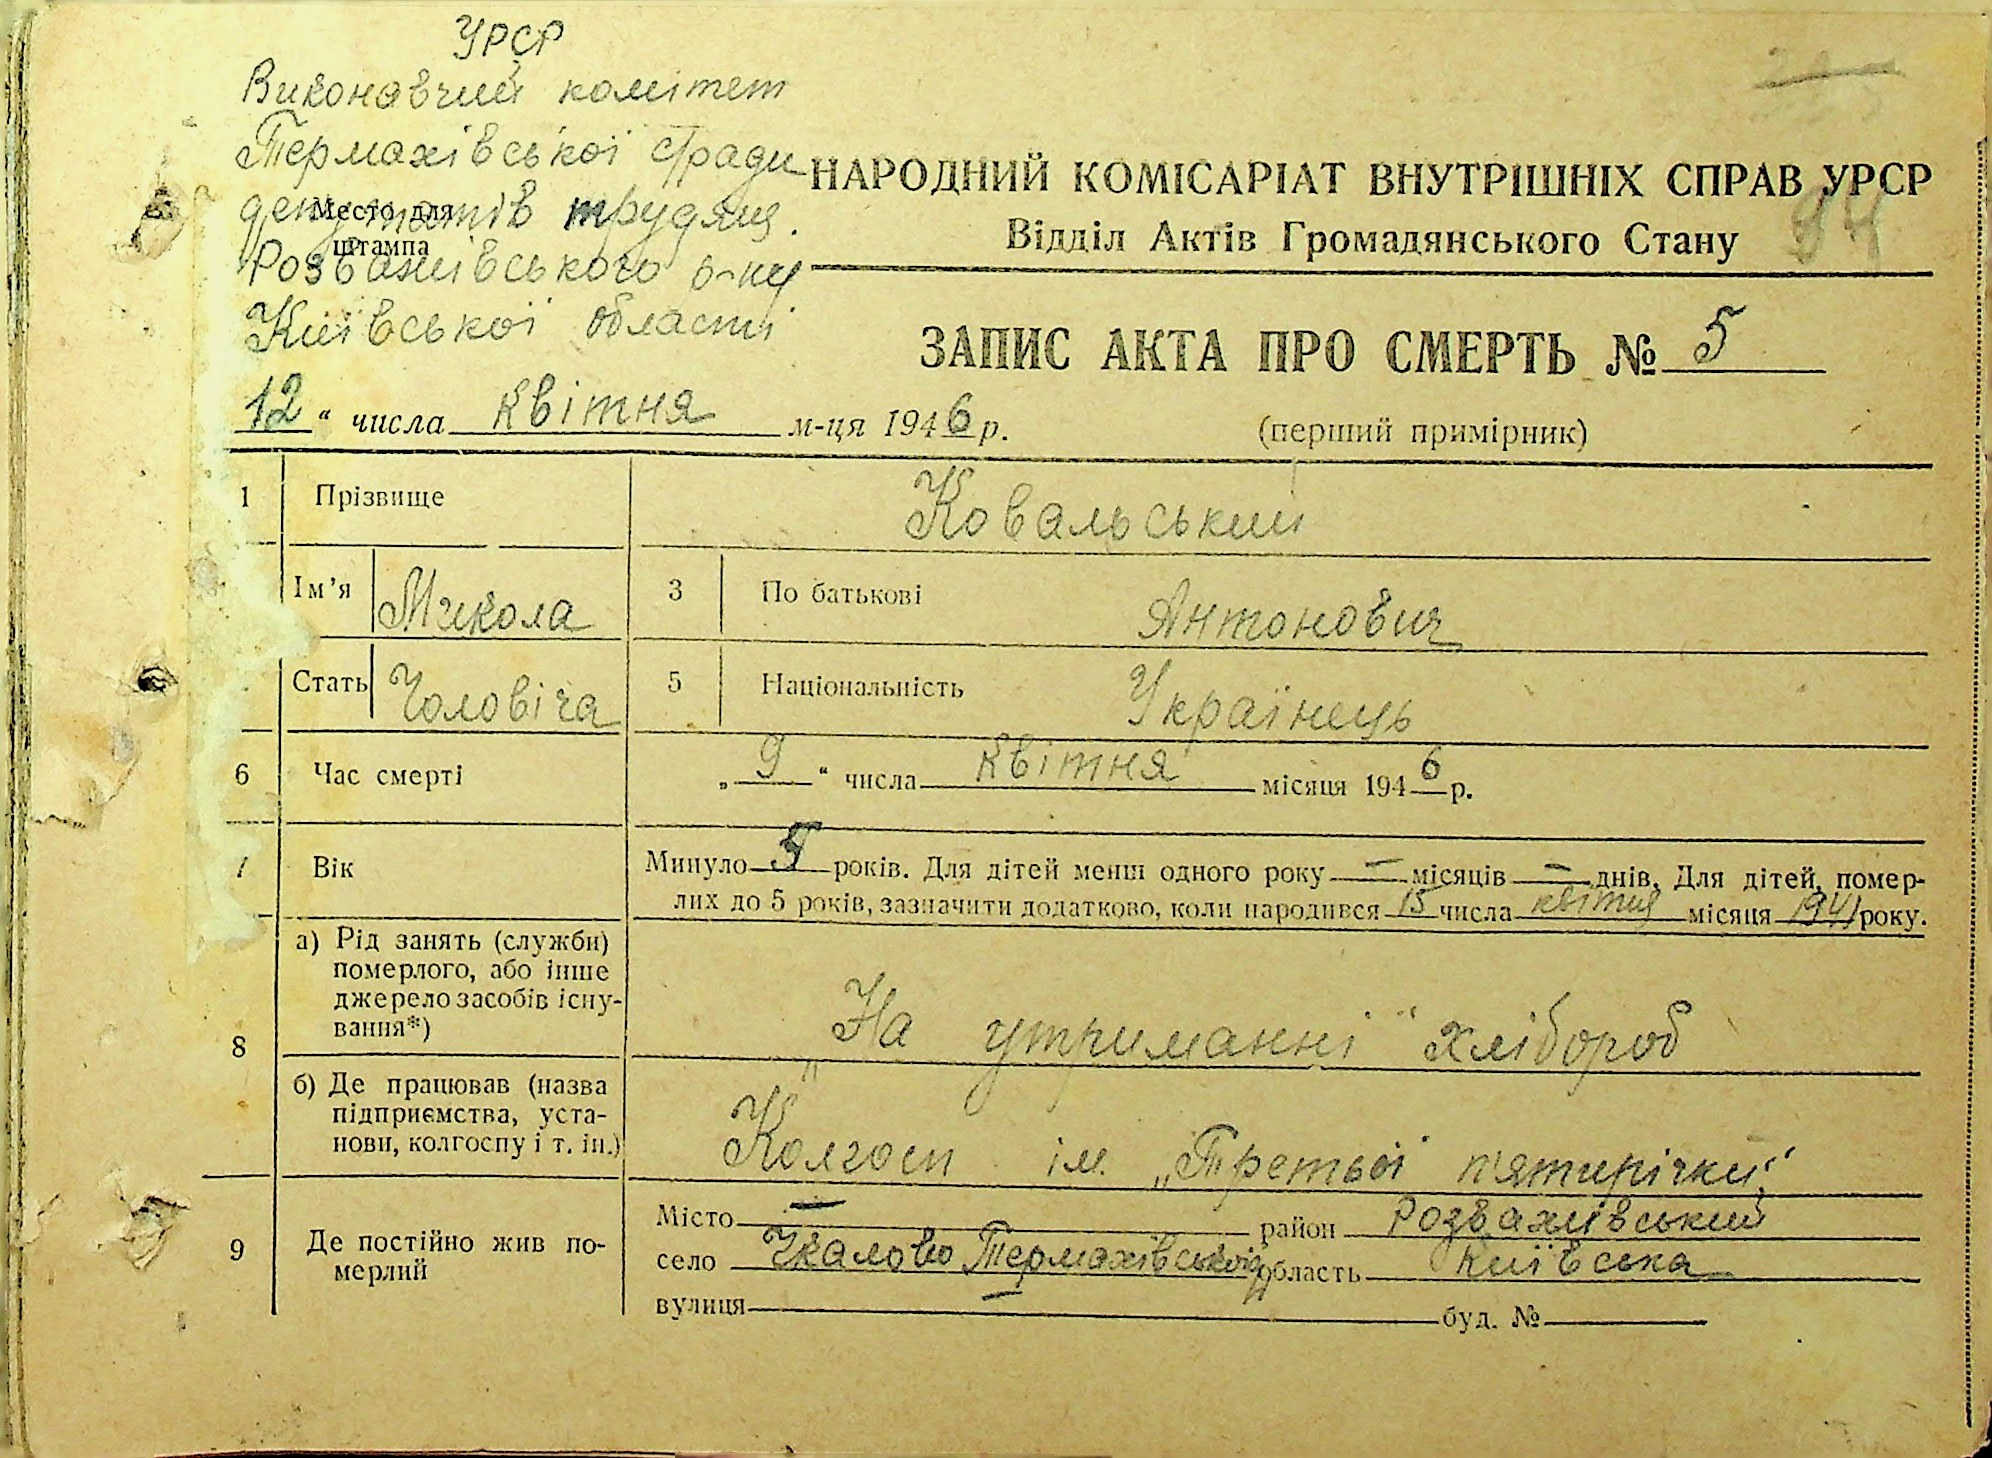 УРСР
Виконавчий комітет
Термахівської с/ради
депутатів трудящ.
Место для
штампа
Розважівського р-ну
Київської області
НАРОДНИЙ КОМІСАРІАТ ВНУТРІШНІХ СПРАВ УРСР
Відділ Актів Громадянського Стану
ЗАПИС АКТА ПРО СМЕРТЬ № 5
12 “ числа квітня м-ця 1946 р.
(перший примірник)
1 Прізвище Ковальський
Ім’я Микола 3 По батькові Антонович
Стать Чоловіча 5 Національність Українець
6 Час смерті „ 9 “ числа квітня місяця 1946 р.
7 Вік Минуло 5 років. Для дітей менш одного року — місяців — днів. Для дітей, помер-
лих до 5 років, зазначити додатково, коли народився 15 числа квітня місяця 1941 року.
8 а) Рід занять (служби)
померлого, або інше
джерело засобів існу-
вання*)
„На утриманні“ хлібороб
б) Де працював (назва
підприємства, уста-
нови, колгоспу і т. ін.)
Колгосп ім. „Третьої п'ятирічки“
9 Де постійно жив по-
мерлий
Місто — район Розважівський
село Чкалово Термахівської область Київська
вулиця — буд. №